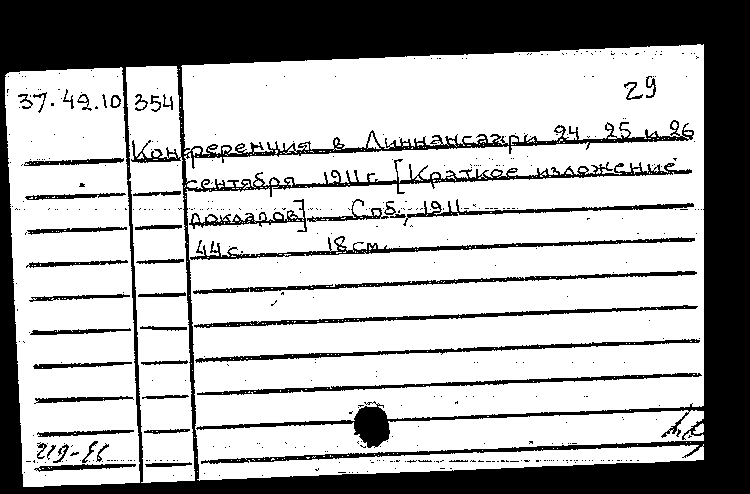 29
37.42.10 354
Конференция в Линнансаари 24, 25 и 26
сентября 1911 г. [Краткое изложение
докладов] Спб., 1911.
44 с. 18 см.